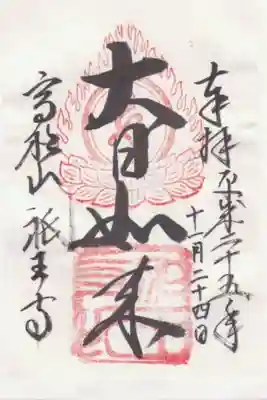 奉拝 平成二十五年
十一月二十四日
大日如来
高松山 祇王寺